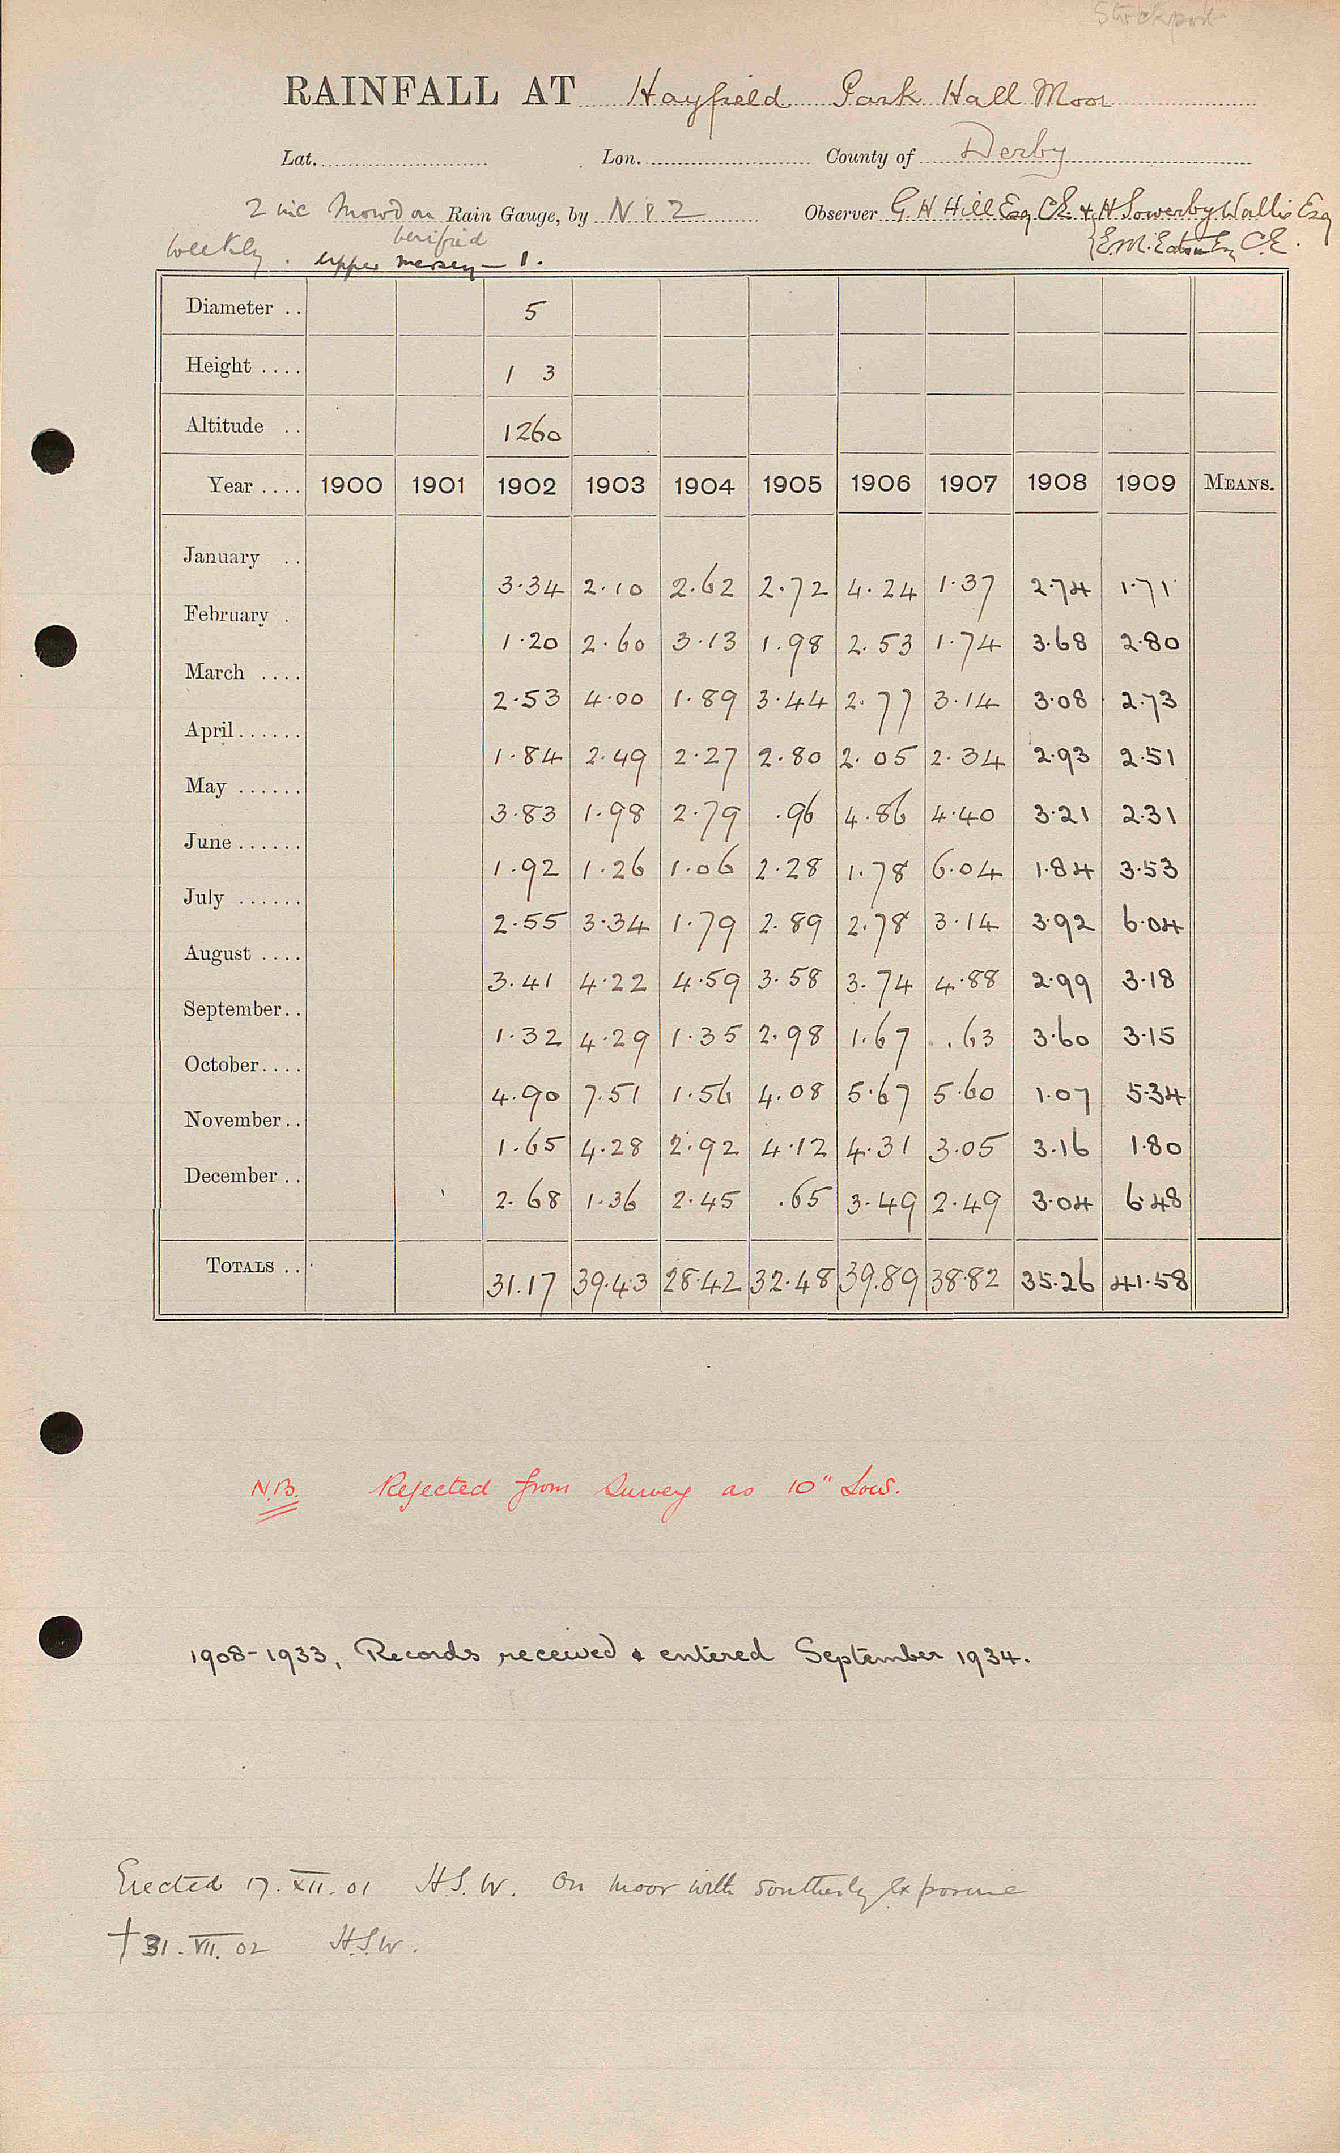 Stockport
RAINFALL AT Hayfield Park Hall Moor
Lat. Lon. County of Derby
2 inc Snowdon Rain Gauge, by N & Z Observer G H Hill Esq CE & H Sowerby Wallis Esq
Weekly. verified E.M. Eaton Esq C.E.
Upper Mersey — 1.
Diameter .. 5
Height .... 1 3
Altitude .. 1260
Year .... 1900 1901 1902 1903 1904 1905 1906 1907 1908 1909 MEANS.
January .. 3.34 2.10 2.62 2.72 4.24 1.37 2.74 1.71
February . 1.20 2.60 3.13 1.98 2.53 1.74 3.68 2.80
March .... 2.53 4.00 1.89 3.44 2.77 3.14 3.08 2.73
April...... 1.84 2.49 2.27 2.80 2.05 2.34 2.93 2.51
May ...... 3.83 1.98 2.79 .96 4.86 4.40 3.21 2.31
June...... 1.92 1.26 1.06 2.28 1.78 6.04 1.84 3.53
July ...... 2.55 3.34 1.79 2.89 2.78 3.14 3.92 6.04
August .... 3.41 4.22 4.59 3.58 3.74 4.88 2.99 3.18
September.. 1.32 4.29 1.35 2.98 1.67 .63 3.60 3.15
October.... 4.90 7.51 1.56 4.08 5.67 5.60 1.07 5.34
November.. 1.65 4.28 2.92 4.12 4.31 3.05 3.16 1.80
December .. 2.68 1.36 2.45 .65 3.49 2.49 3.04 6.48
TOTALS .. 31.17 39.43 28.42 32.48 39.89 38.82 35.26 41.58
N.B. Rejected from Survey as 10" Low.
1908-1933, Records received & entered September 1934.
Erected 17.XII.01 H.S.W. On moor with southerly exposure
† 31.VII.02 H.S.W.